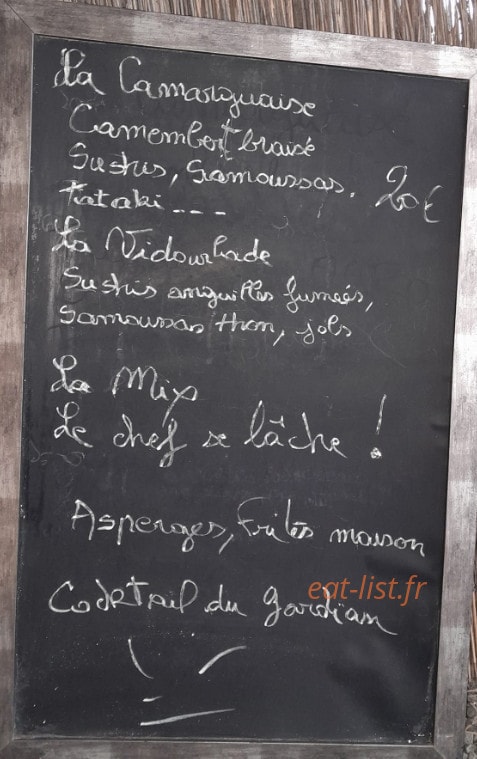 La Camarguaise
Camembert braisé
Sushis, Samoussas. 20€
Tataki ---
La Vidourlade
Sushis anguilles fumées,
Samoussas thon, jols
La Mix
Le chef se lâche !
Asperges, Frites maison
eat-list.fr
Cocktail du gardian